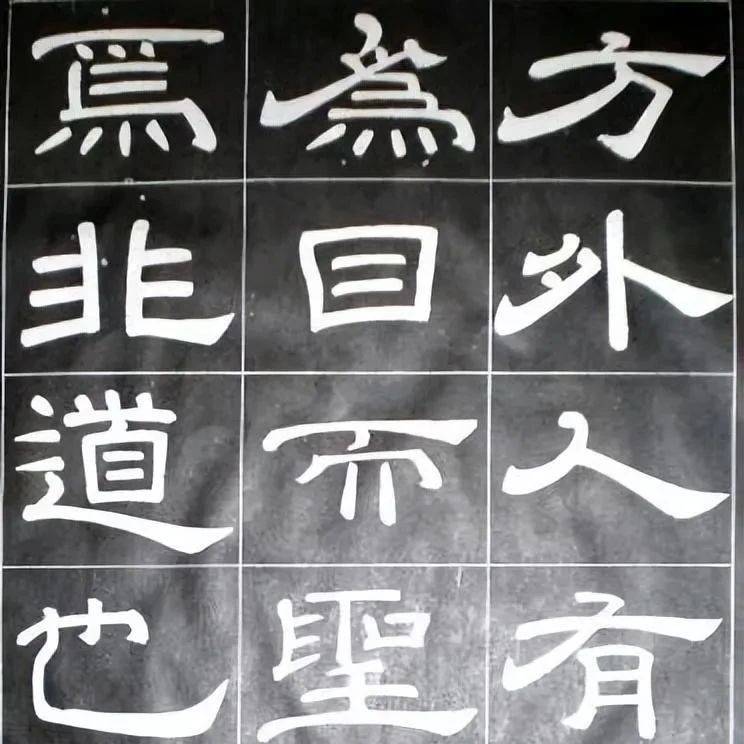 方外人有
為目而聖
焉非道也